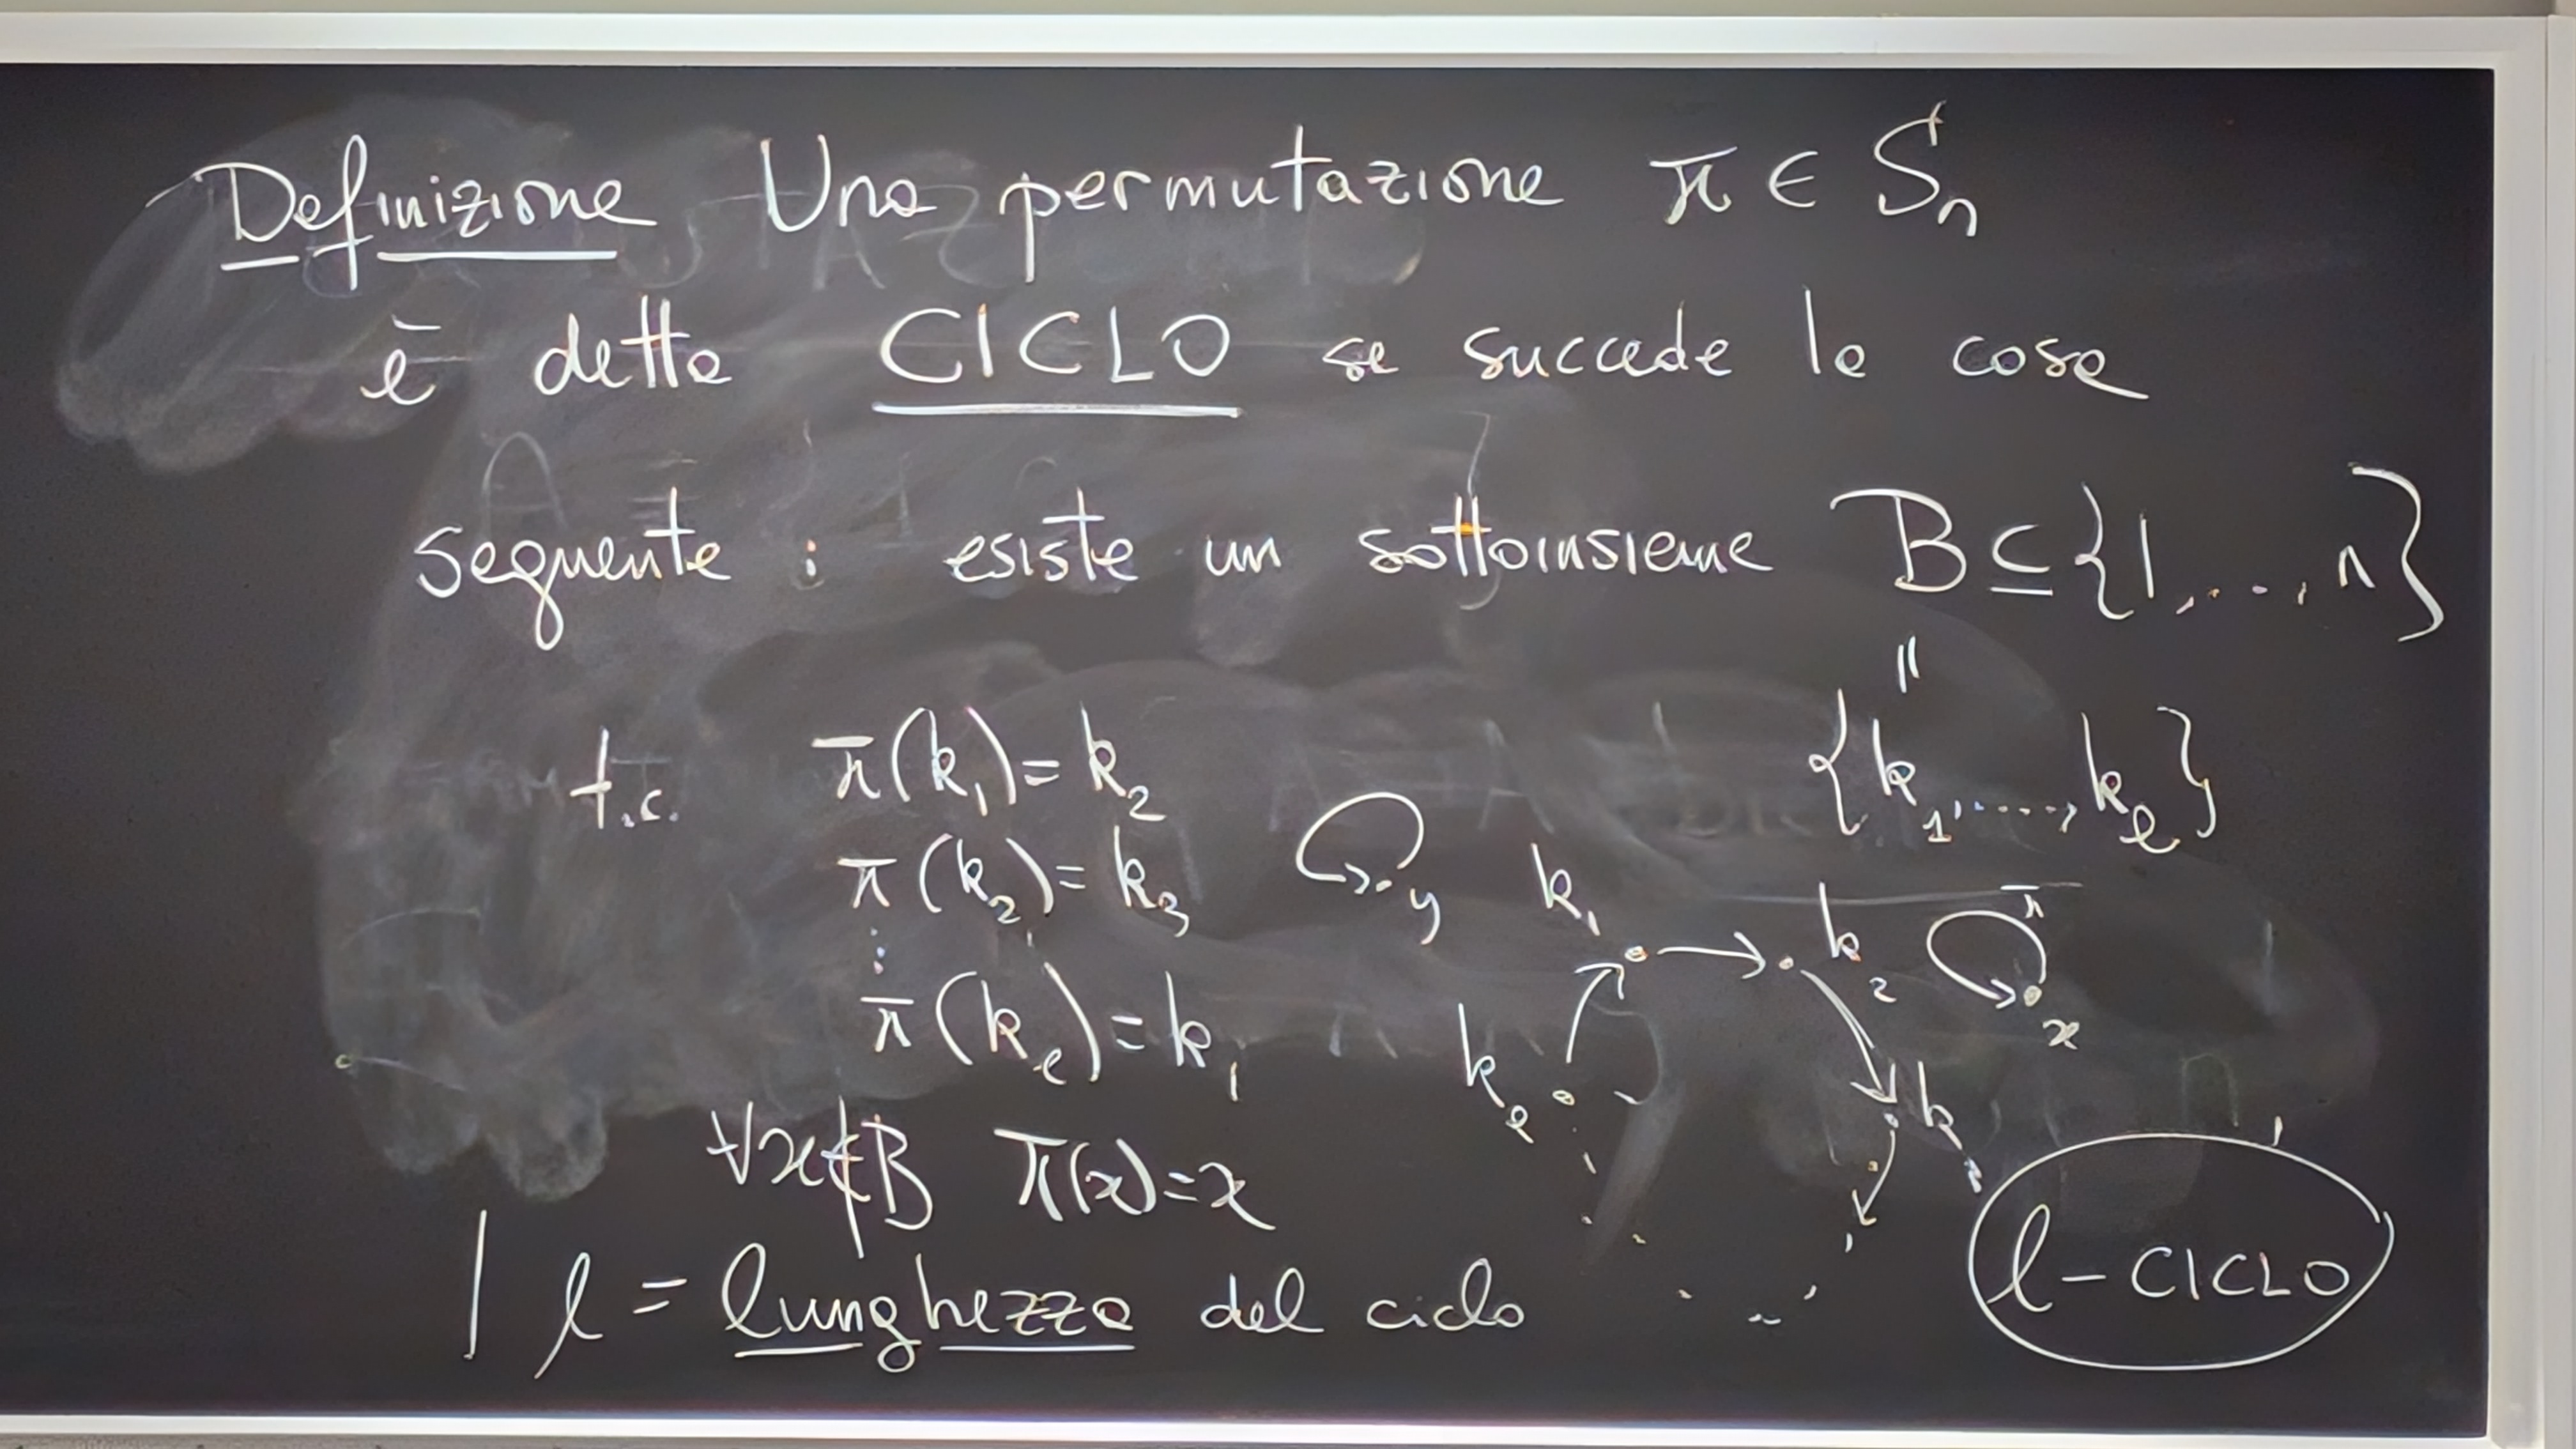 Definizione Una permutazione π ∈ Sₙ
è detta CICLO se succede la cosa
seguente : esiste un sottoinsieme B ⊆ {1,...,n}
=
{k₁,....,kₗ}
t.c. π(k₁) = k₂
π(k₂) = k₃
⋮
π(kₗ) = k₁
∀x∉B π(x)=x
y
k₁ k₂ π
x
kₗ k₃
l = lunghezza del ciclo
l - CICLO